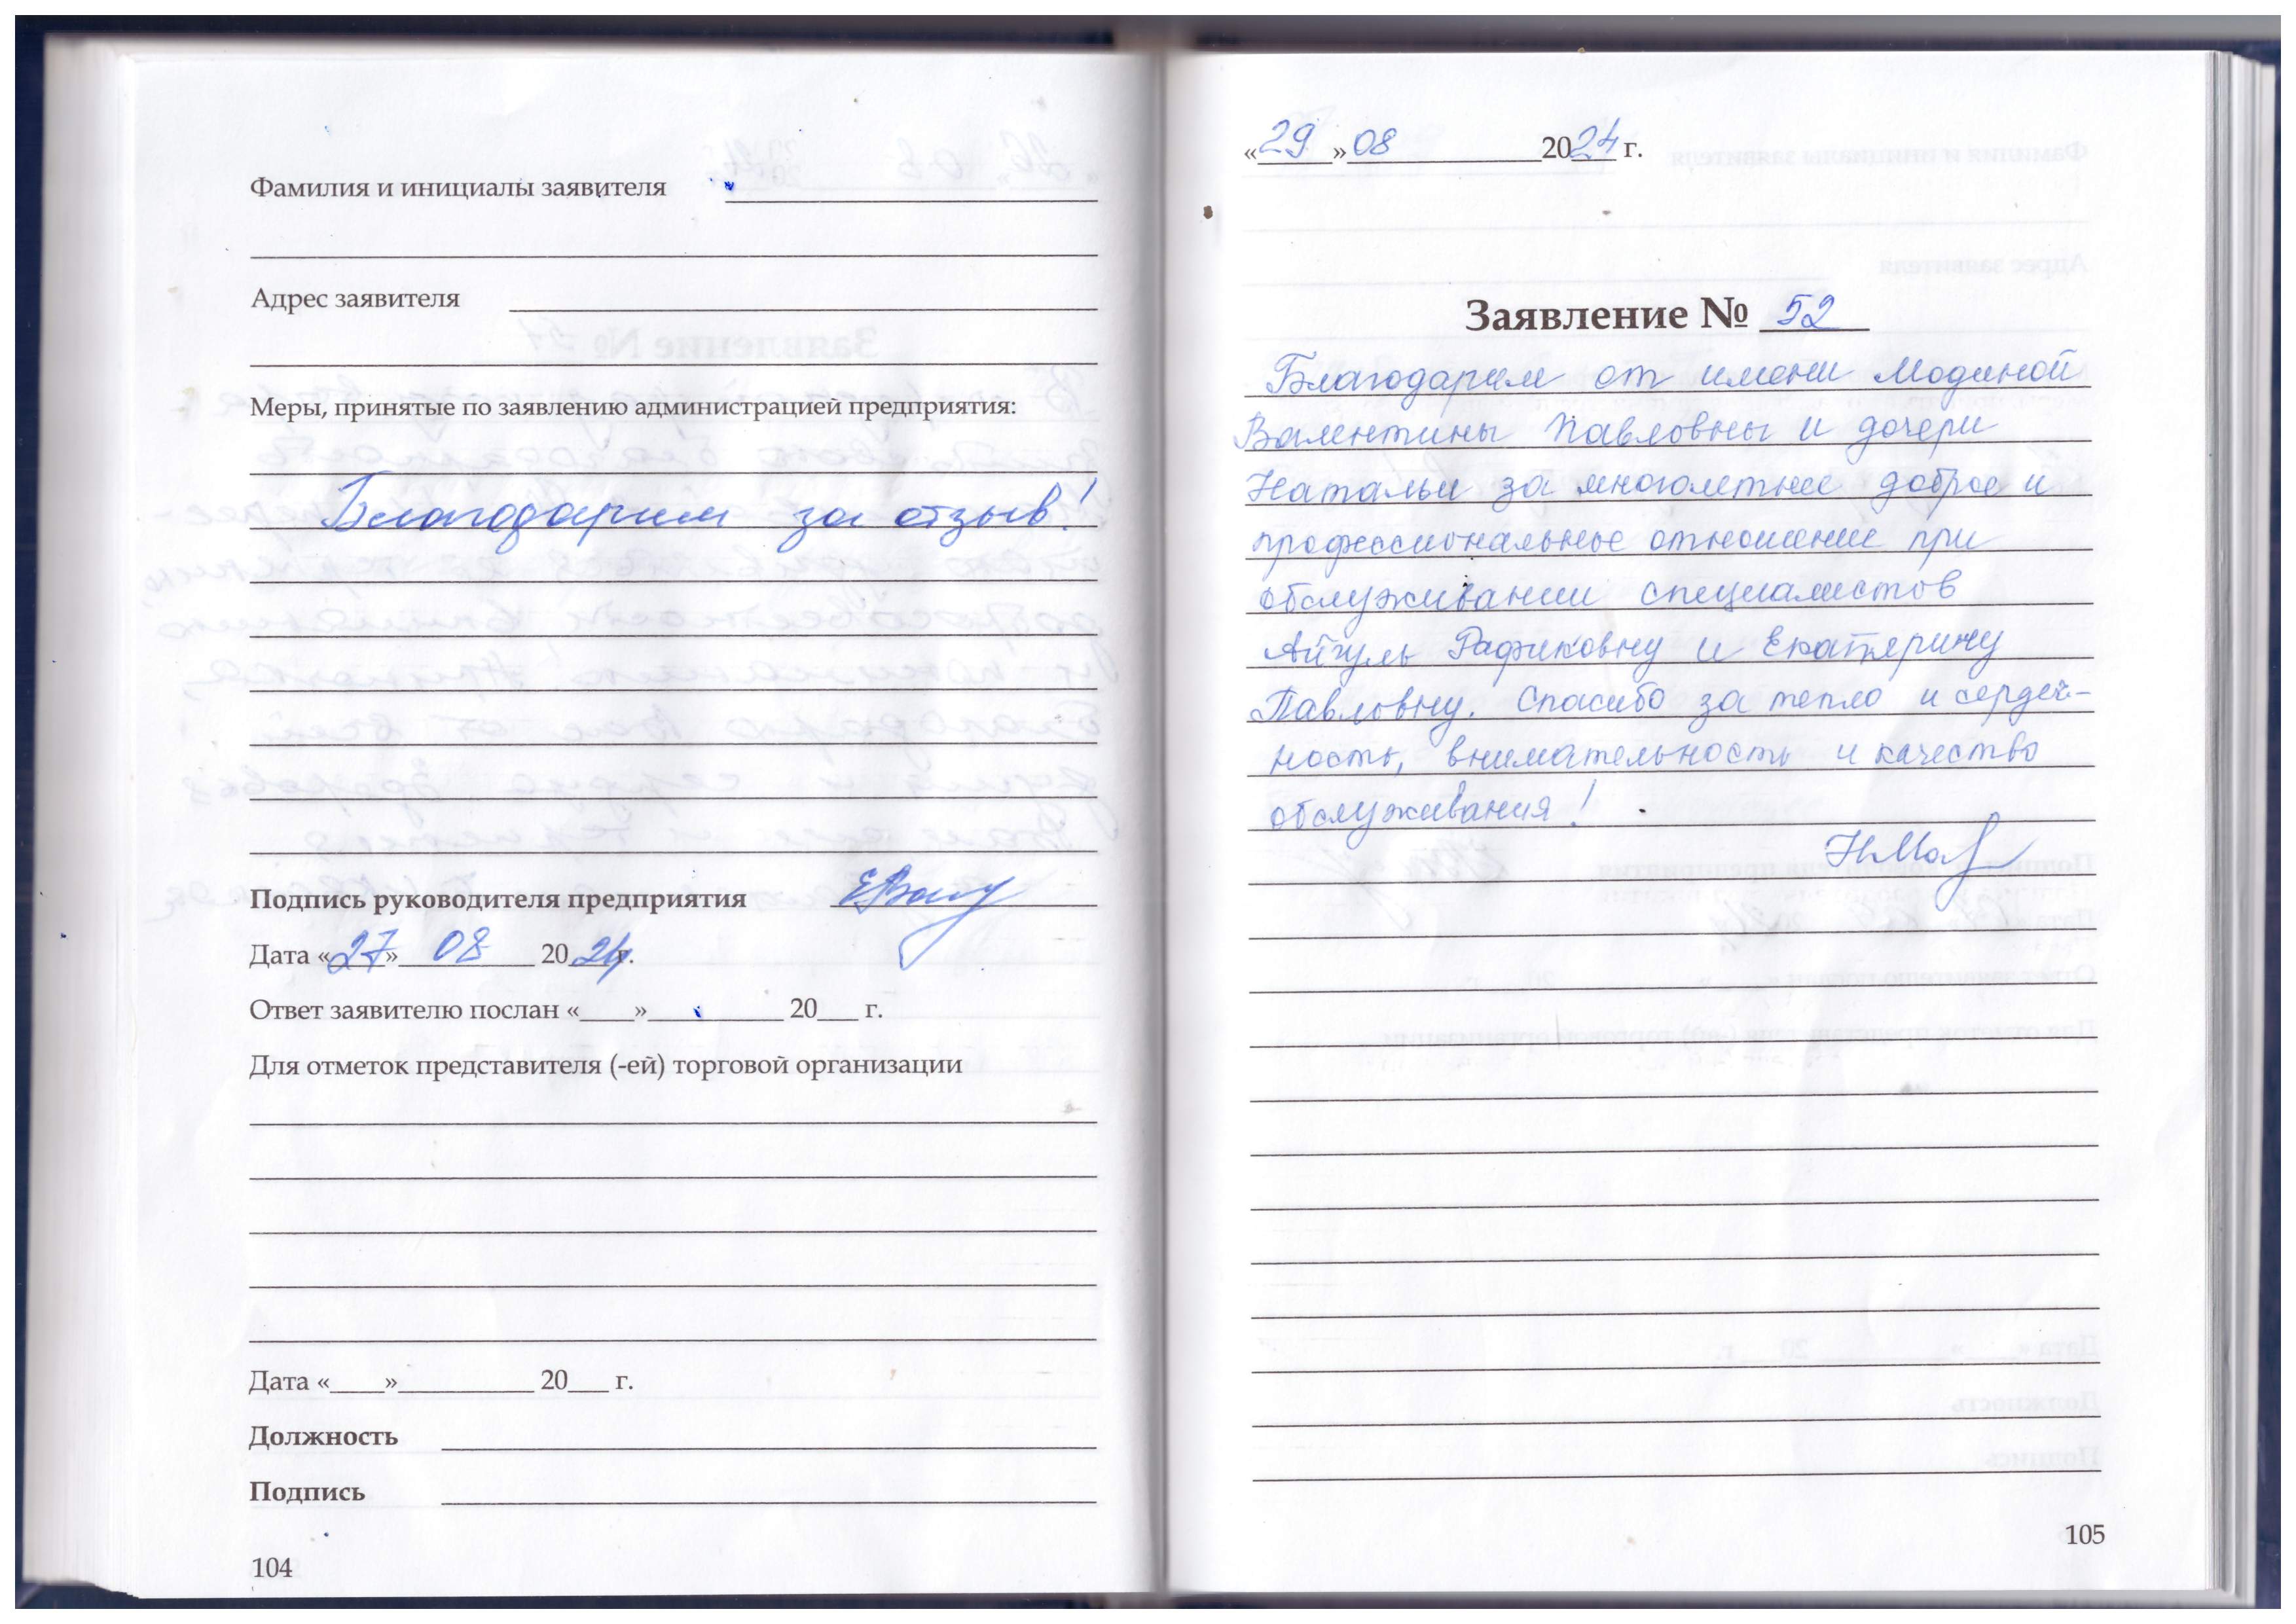 Фамилия и инициалы заявителя
Адрес заявителя
Меры, принятые по заявлению администрацией предприятия:
Благодарим за отзыв!
Подпись руководителя предприятия
Дата «27» 08 2024 г.
Ответ заявителю послан «____»__________ 20___ г.
Для отметок представителя (-ей) торговой организации
Дата «____»__________ 20___ г.
Должность
Подпись
104
«29» 08 2024 г.
Заявление № 52
Благодарим от имени Модиной
Валентины Павловны и дочери
Натальи за многолетнее доброе и
профессиональное отношение при
обслуживании специалистов
Айгуль Рафиковну и Екатерину
Павловну. Спасибо за тепло и сердеч-
ность, внимательность и качество
обслуживания!
105